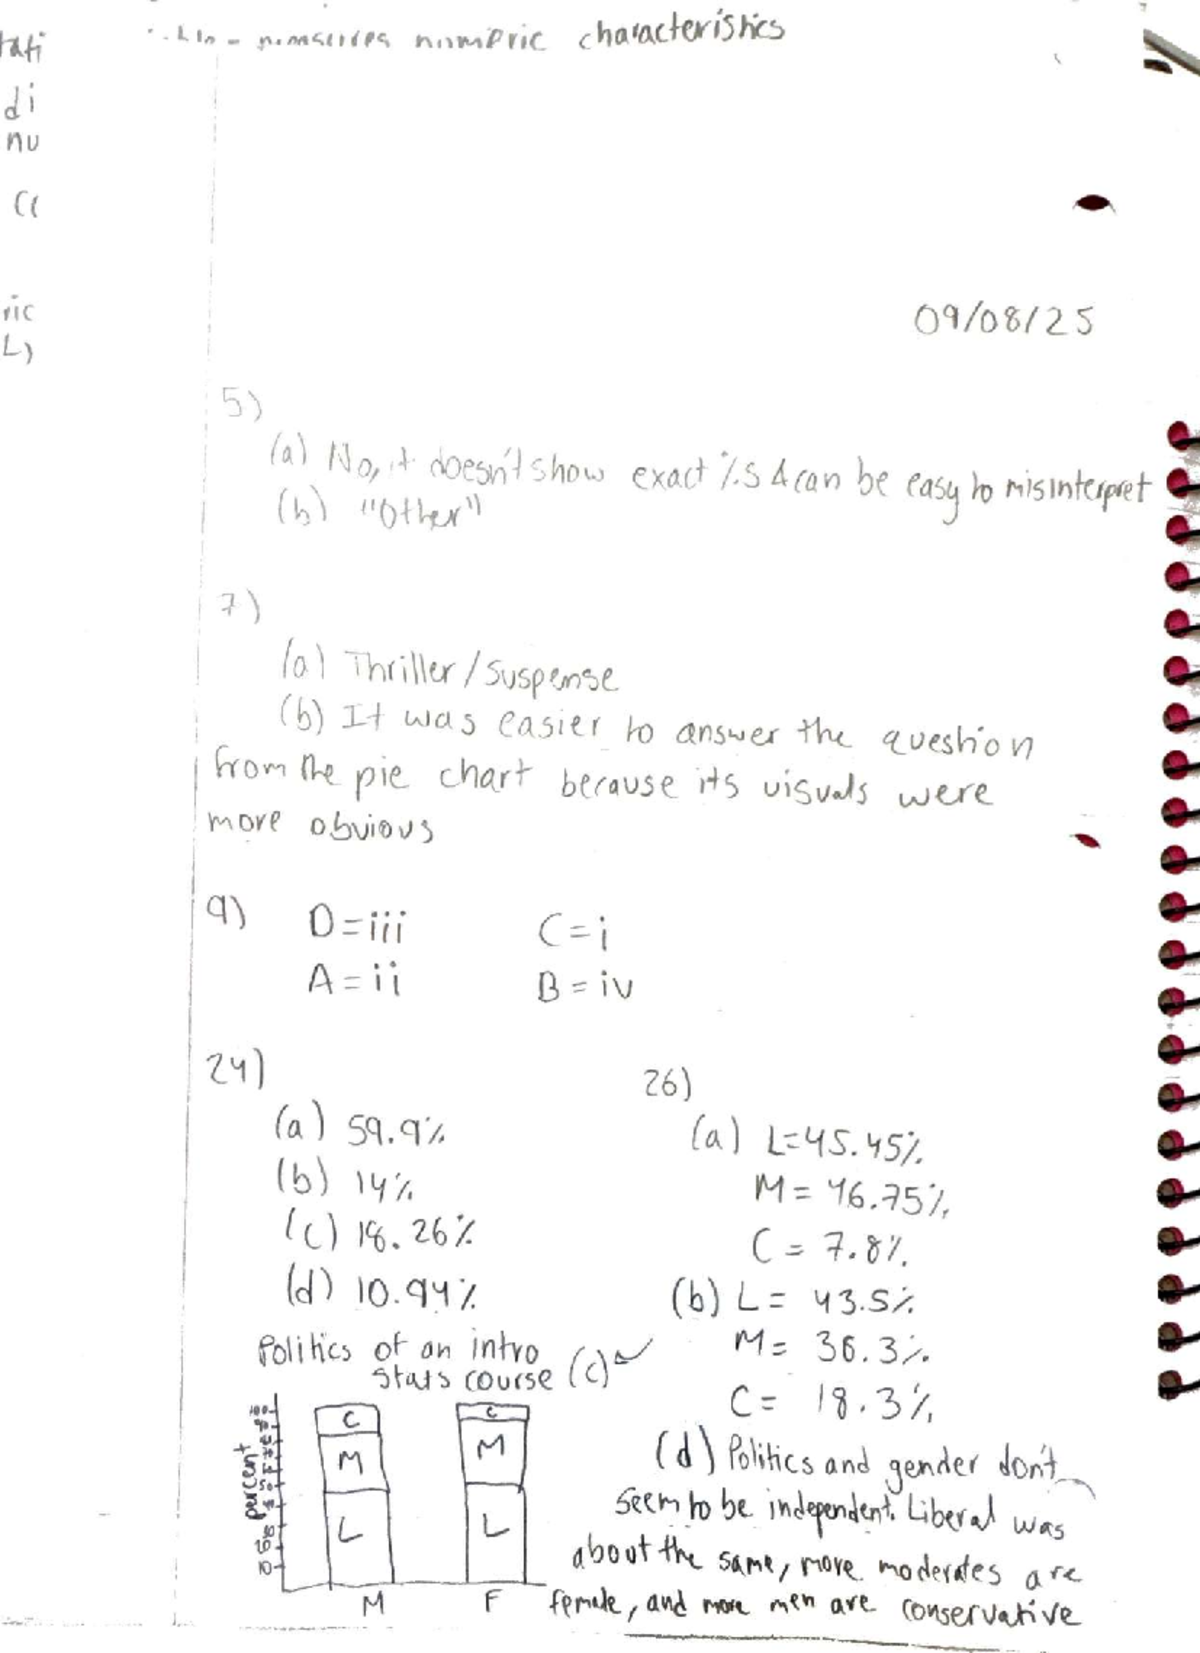 numeric characteristics
tati
di
nu
ric
L)
09/08/25
5)
(a) No, it doesn't show exact %s & can be easy to misinterpret
(b) "Other"
7)
(a) Thriller/Suspense
(b) It was easier to answer the question
from the pie chart because its visuals were
more obvious
9) D=iii C=i
A=ii B=iv
24)
(a) 59.9%
(b) 14%
(c) 18.26%
(d) 10.94%
26)
(a) L=45.45%
M=46.75%
C=7.8%
(b) L=43.5%
M=38.3%
C=18.3%
Politics of an intro
stats course (c)
percent
C
M
L
C
M
L
M F
(d) Politics and gender don't
seem to be independent. Liberal was
about the same, more moderates are
female, and more men are conservative